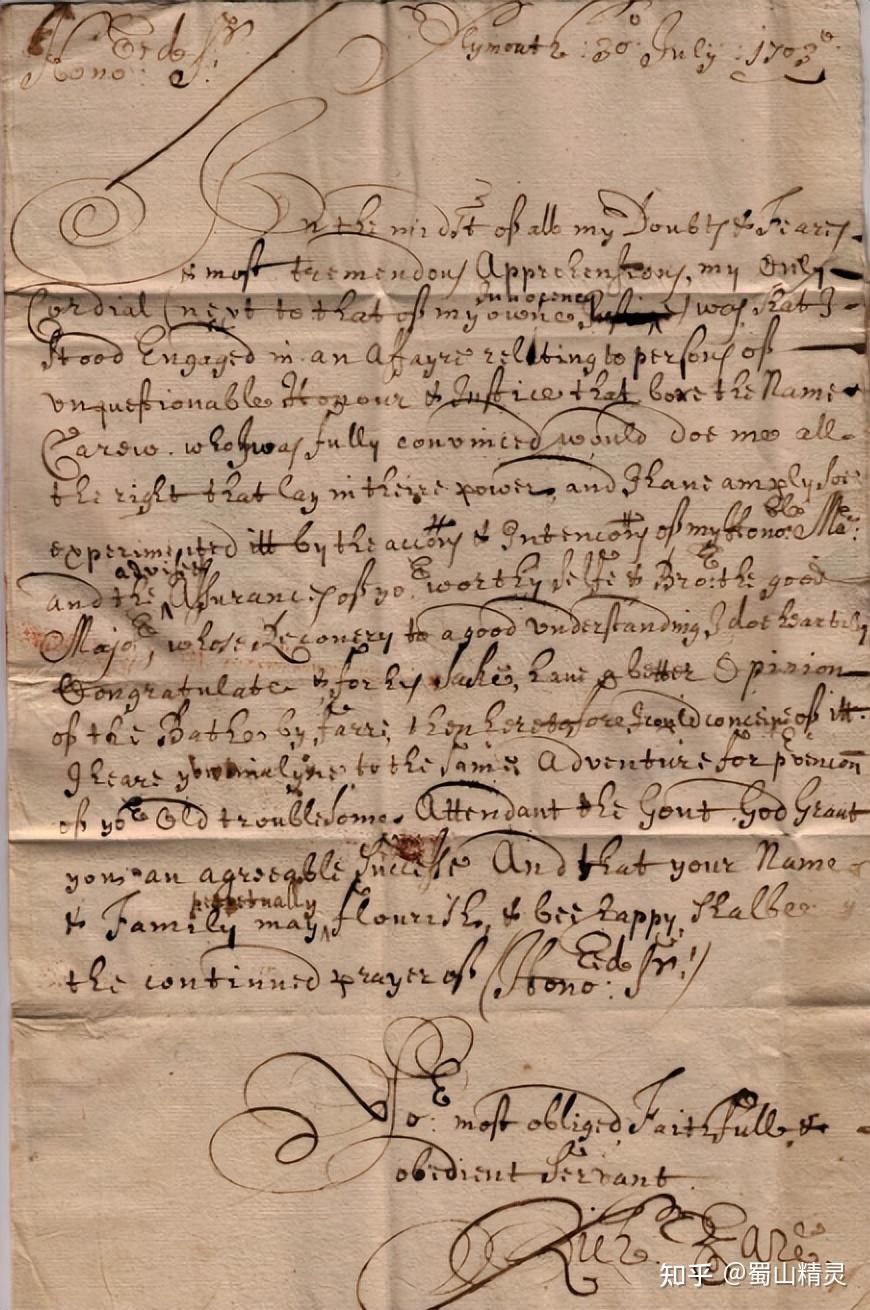 Hono:rd Sr: Plymouth: 30o July: 1703:
In the midst of all my Doubts & Feares
& most tremendous Apprehensions, my Only
Cordial (next to that of my owne Innocency) was that I
stood Engaged in an Affayre relating to persons of
unquestionable Honour & Justice that bore the Name
Carew. who I was fully convinced would doe me all
the right that lay in theire power, and I have amply soe
experimented itt by the accons & Intencons of my Hono:ble Ma:
and the advised Assurances of yor worthy selfe & Bro: the good
Major, whose Recovery to a good understanding I doe heartily
Congratulate & for his sake, have a better Opinion
of the Bathe by farre, then heretofore I could conceive of itt.
I heare you to the same Adventure for prvencon
of yor Old troublesome Attendant the Gout God Grant
you an agreeable Successe And that your Name
& Family may perpetually flourish, & bee happy, shalbee
the continued prayer of (Hono:rd Sr:)
Yor: most obliged Faithfull &
obedient Servant
Rich
知乎 @蜀山精灵